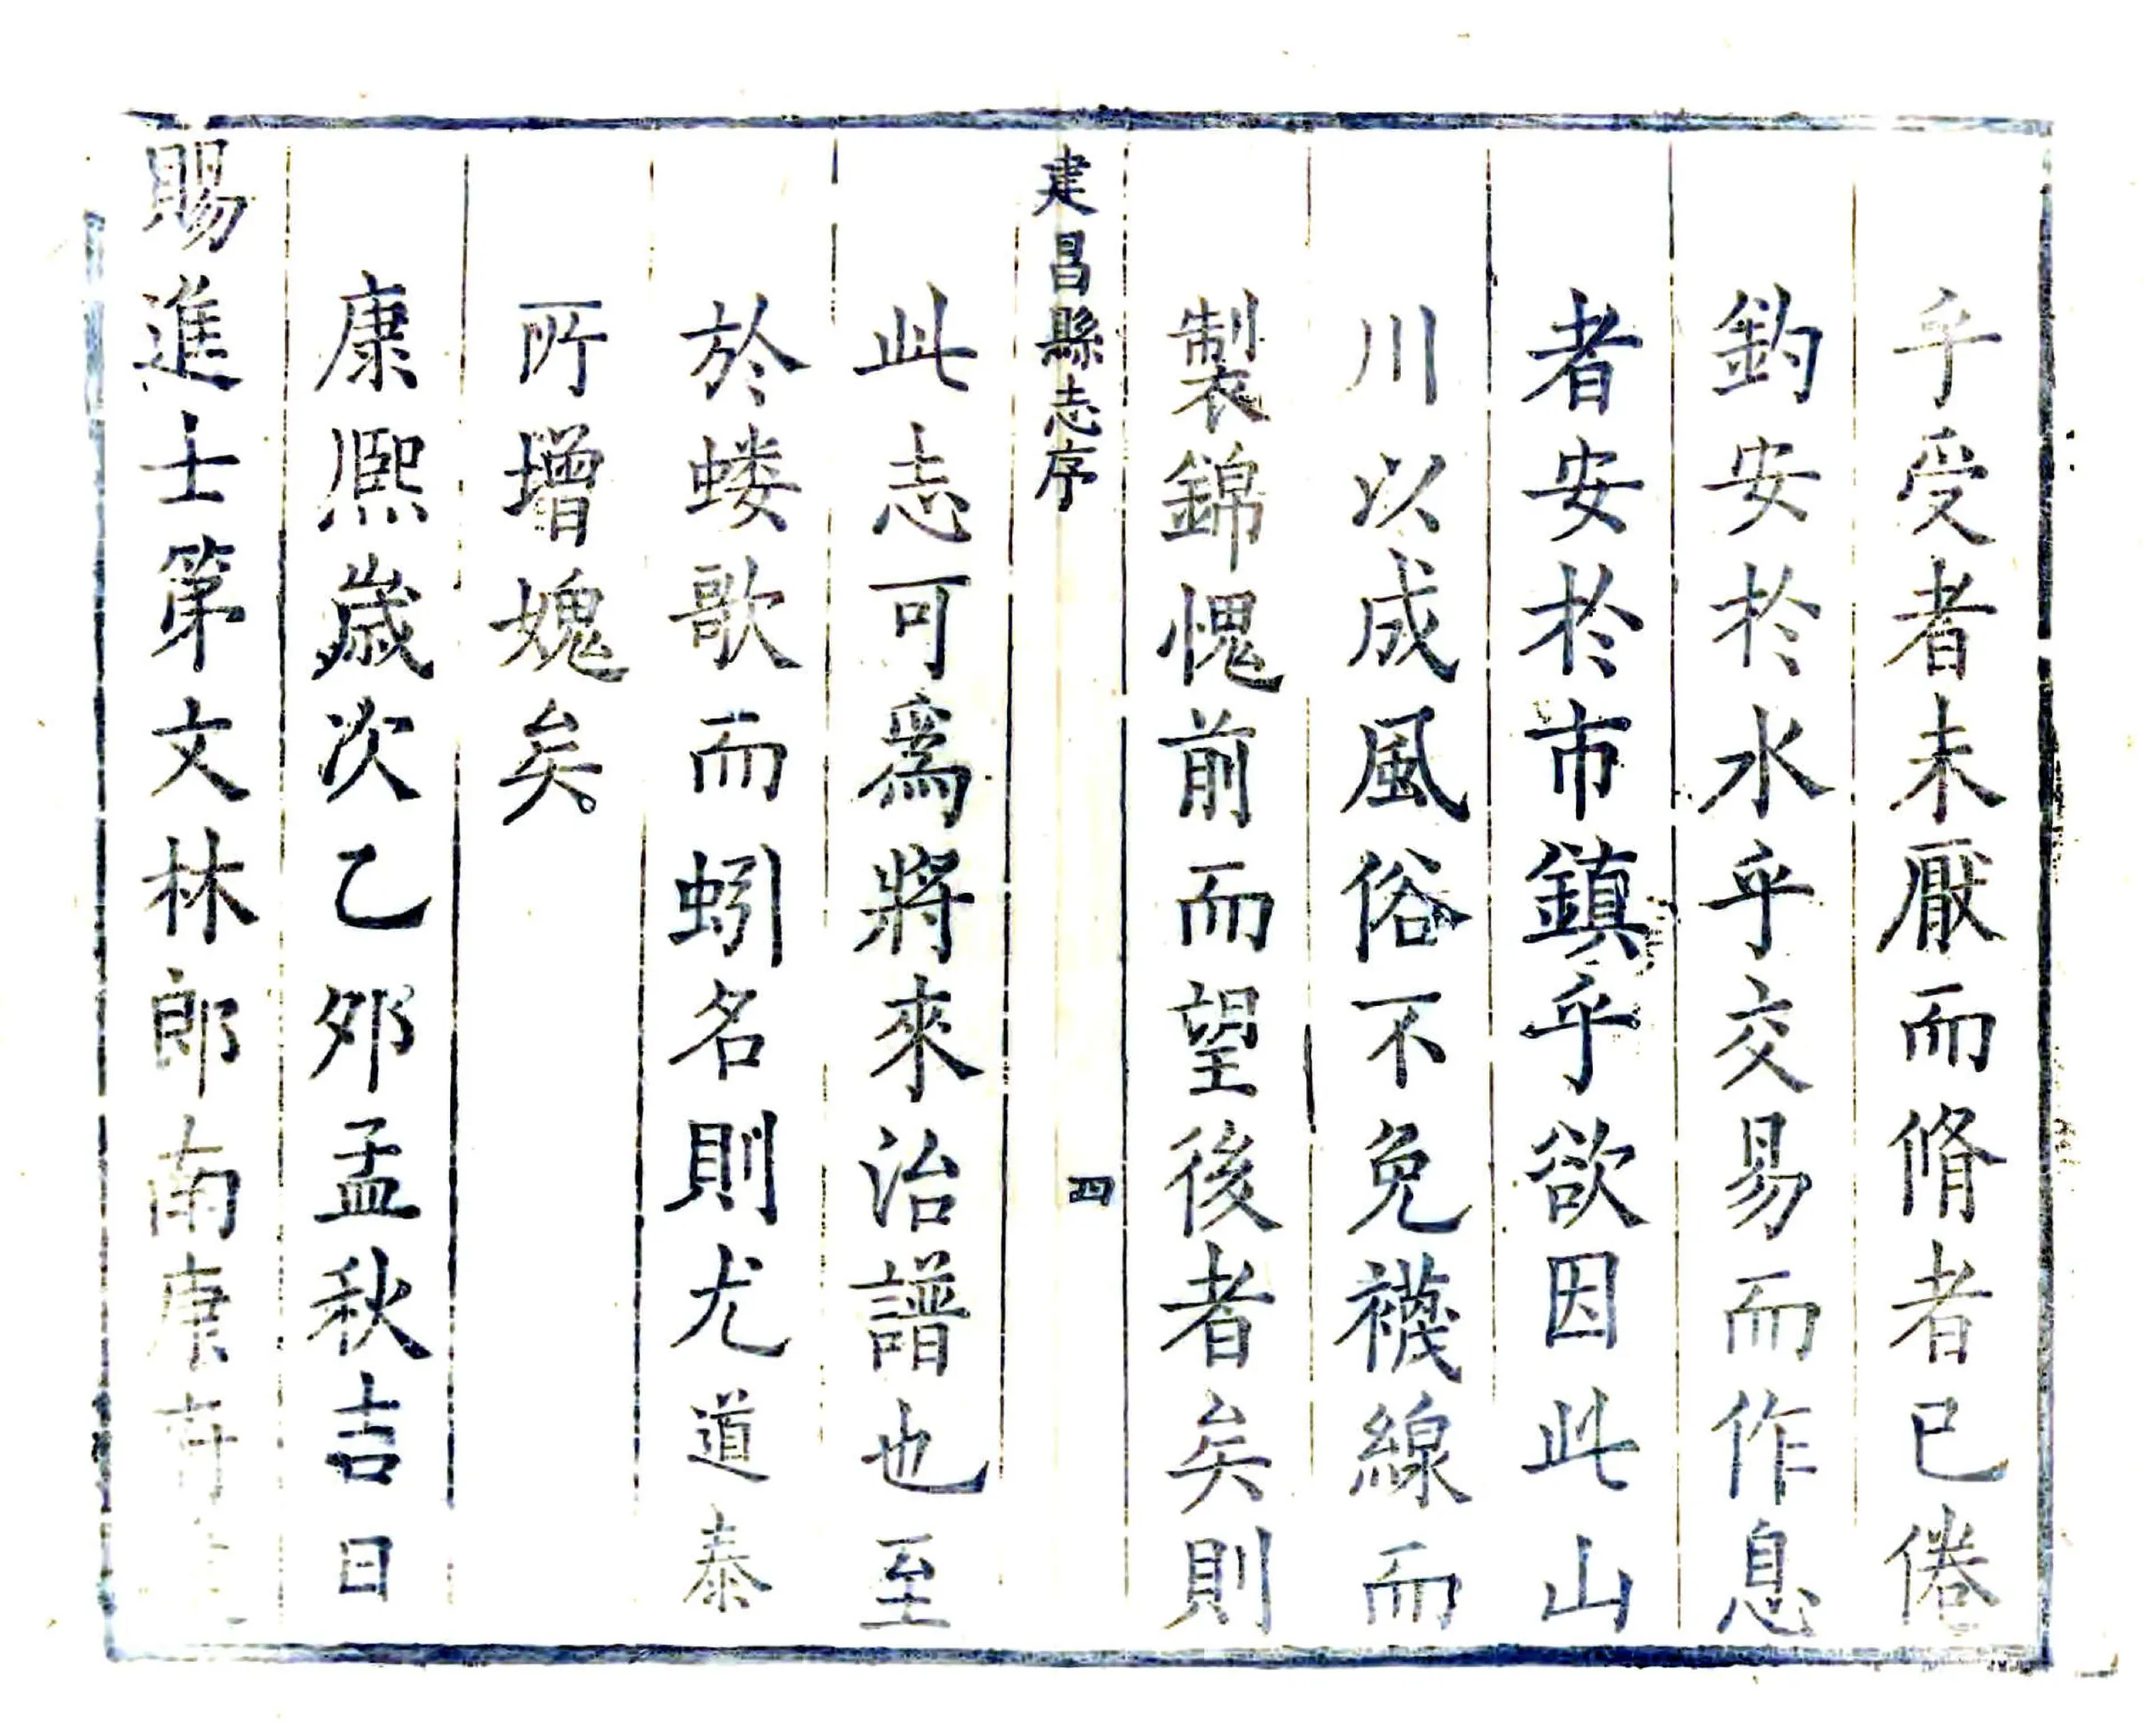 乎受者未厭而脩者已倦
釣安於水乎交易而作息
者安於市鎮乎欲因此山
川以成風俗不免襪線而
製錦愧前而望後者矣則
建昌縣志序
四
此志可為將來治譜也至
於蝼歌而蚓名則尤道泰
所增媿矣
康熙歲次乙夘孟秋吉日
賜進士第文林郎南康府